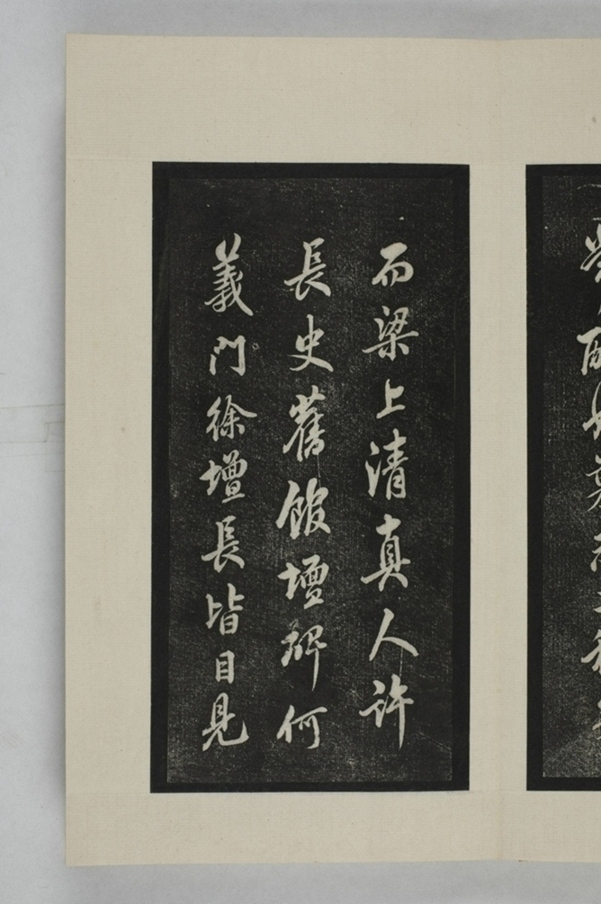 而梁上清真人許
長史舊館壇碑何
義門徐壇長皆目見